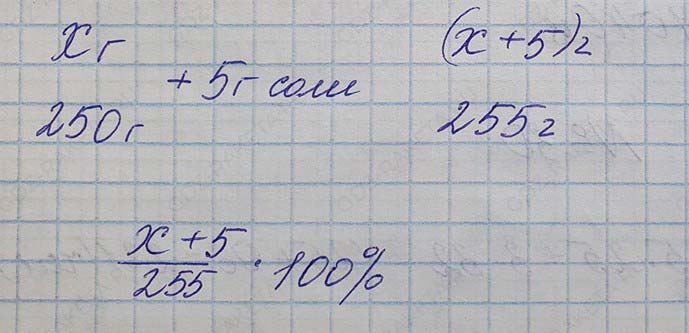 x г (x + 5) г
+ 5 г соли
250 г 255 г
x + 5
255
· 100%